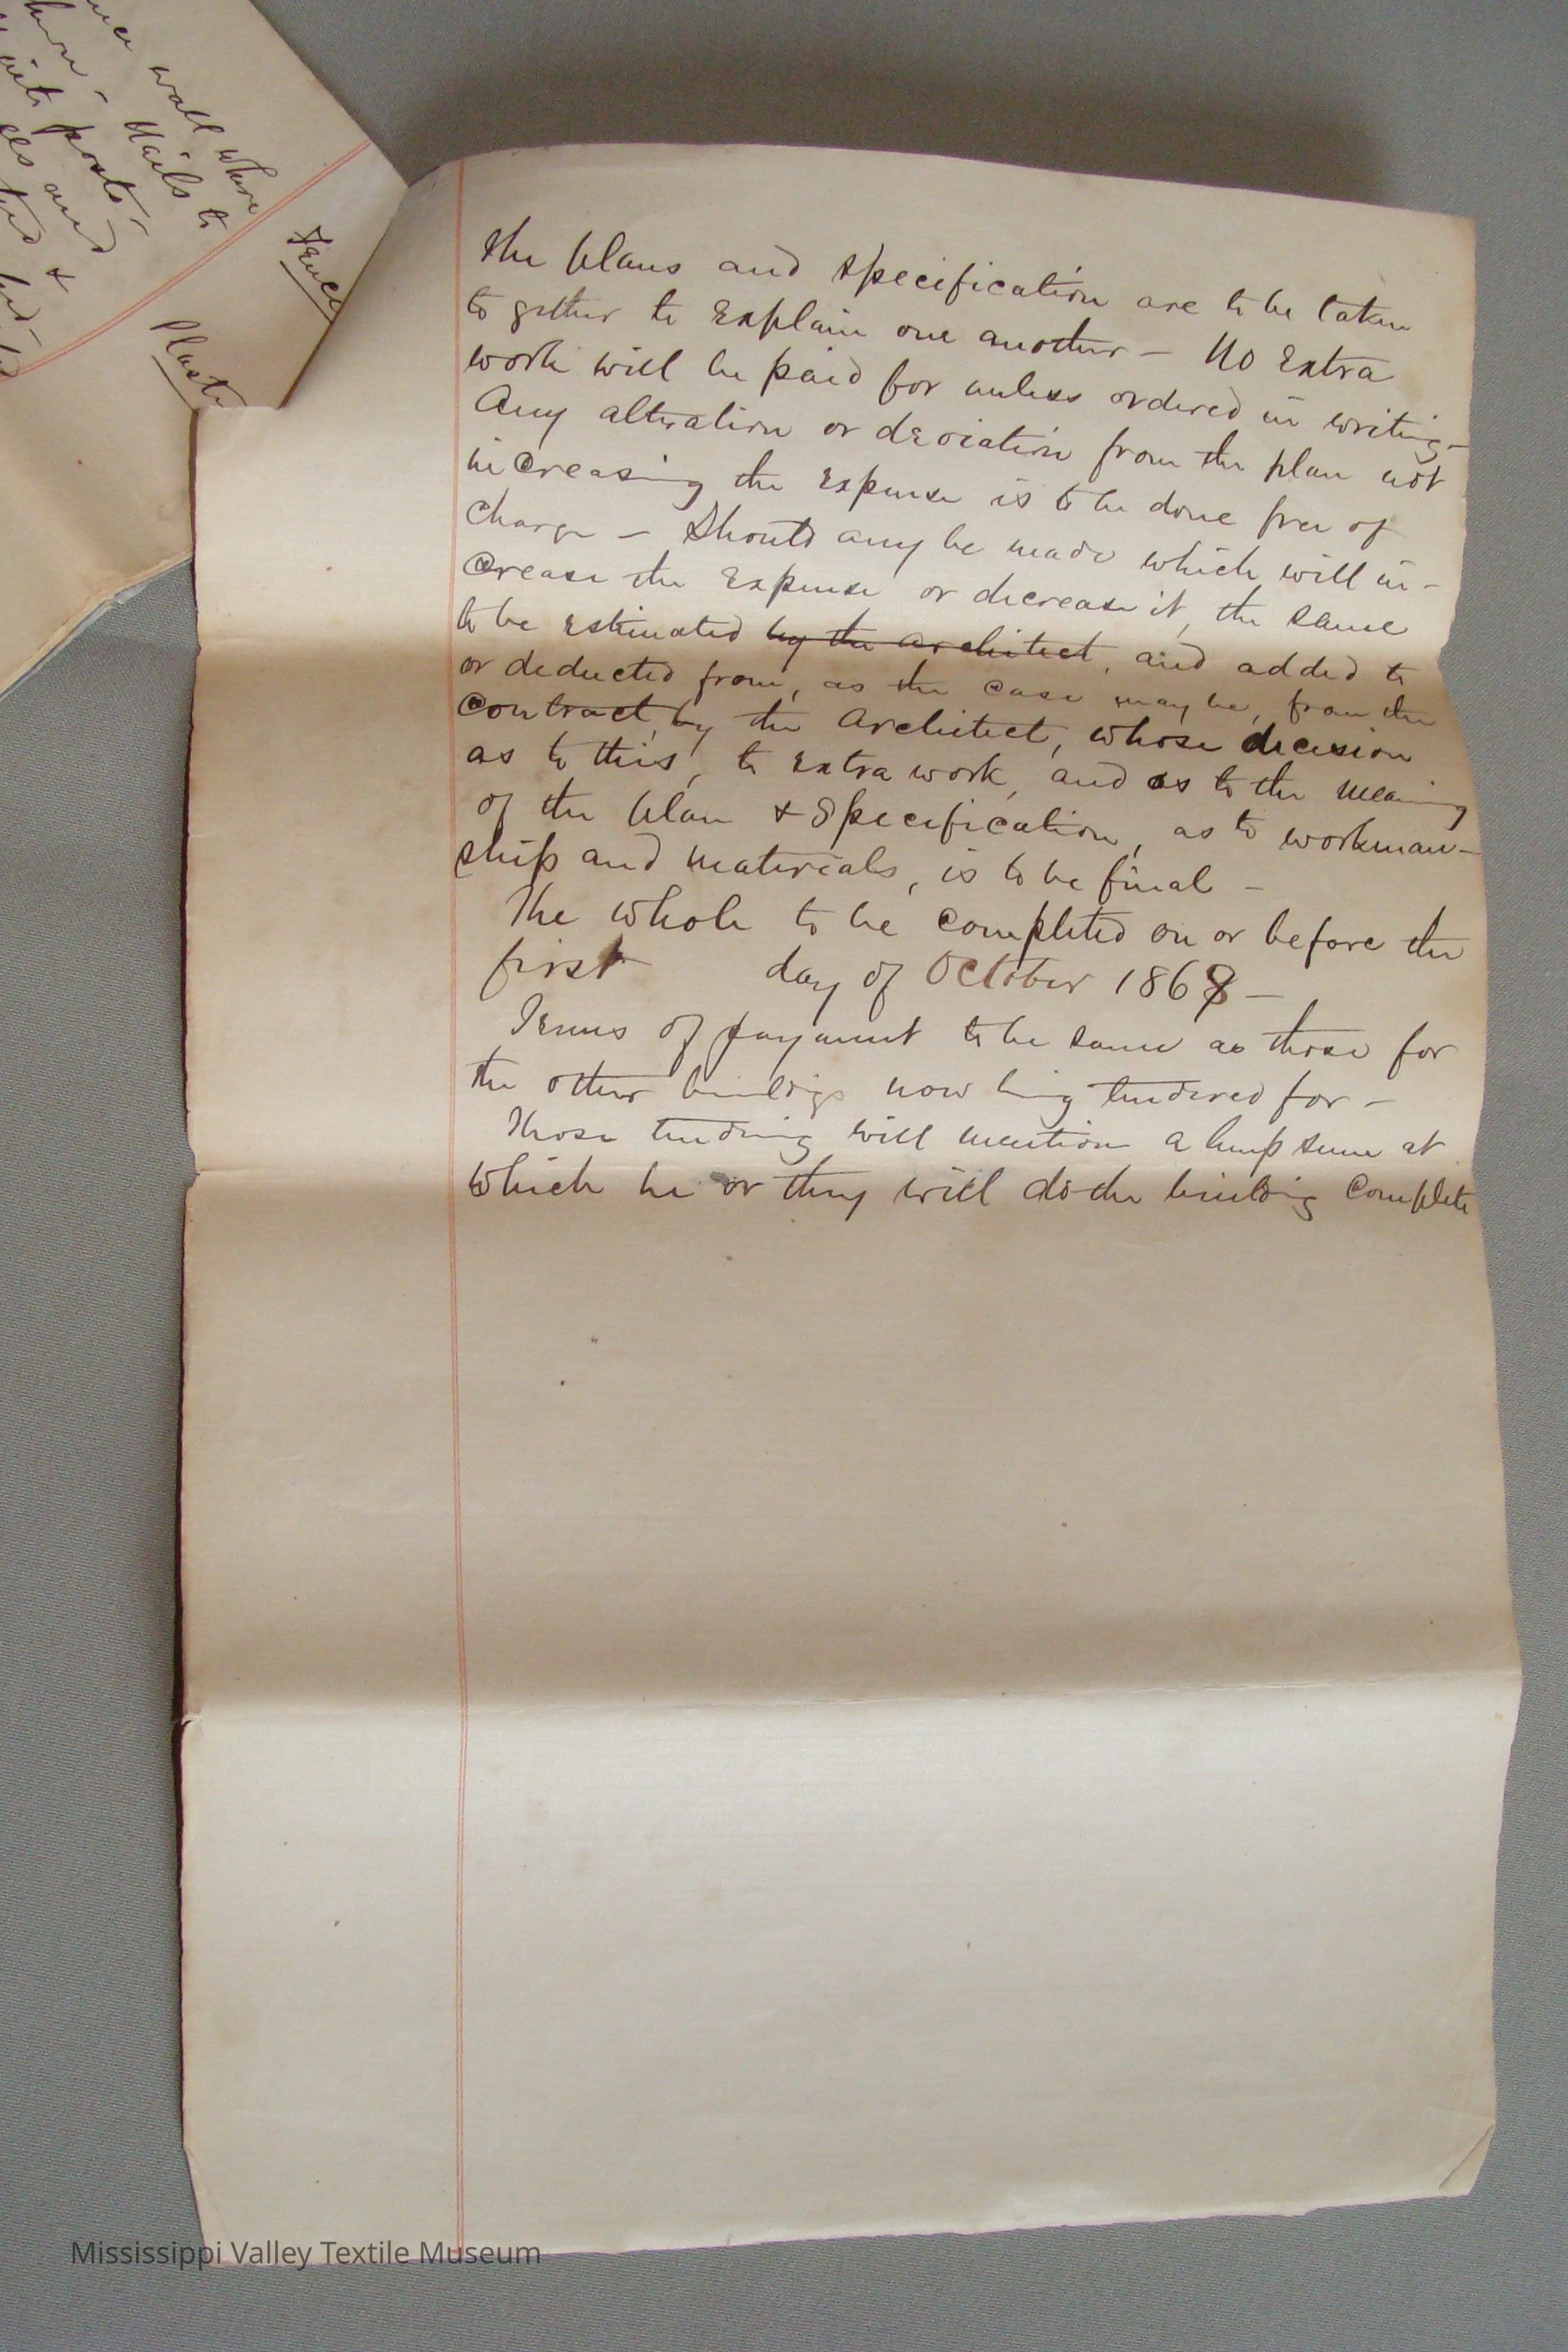 wall where
- Nails to
posts -
and
&
Fence
Plast
The plans and specification are to be taken
to gether to Explain one another - No Extra
work will be paid for unless ordered in writing -
Any alteration or deviation from the plan not
increasing the Expense is to be done free of
charge - Should any be made which will in-
crease the Expense or decrease it, the same
to be Estimated by the architect, and added to
or deducted from, as the case may be, from the
contract, by the Architect, whose decision
as to this, to Extra work, and as to the meaning
of the plan & Specification, as to workman-
ship and materials, is to be final -
The whole to be completed on or before the
first day of October 1868 -
Terms of payment to be same as those for
the other buildigs now being tendered for -
Those tendring will mention a lump sum at
which he or they will do the building Complete
Mississippi Valley Textile Museum